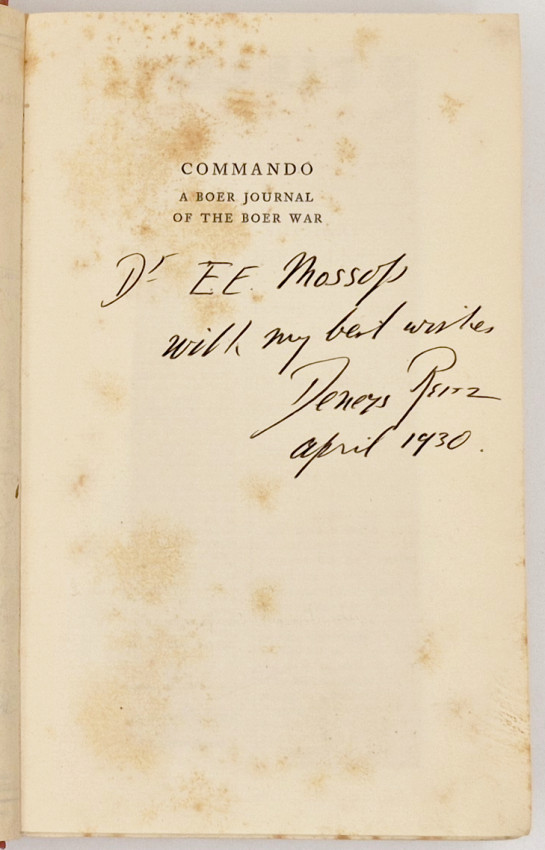 COMMANDO
A BOER JOURNAL
OF THE BOER WAR
Dr E.E. Mossop
with my best wishes
Deneys Reitz
april 1930.